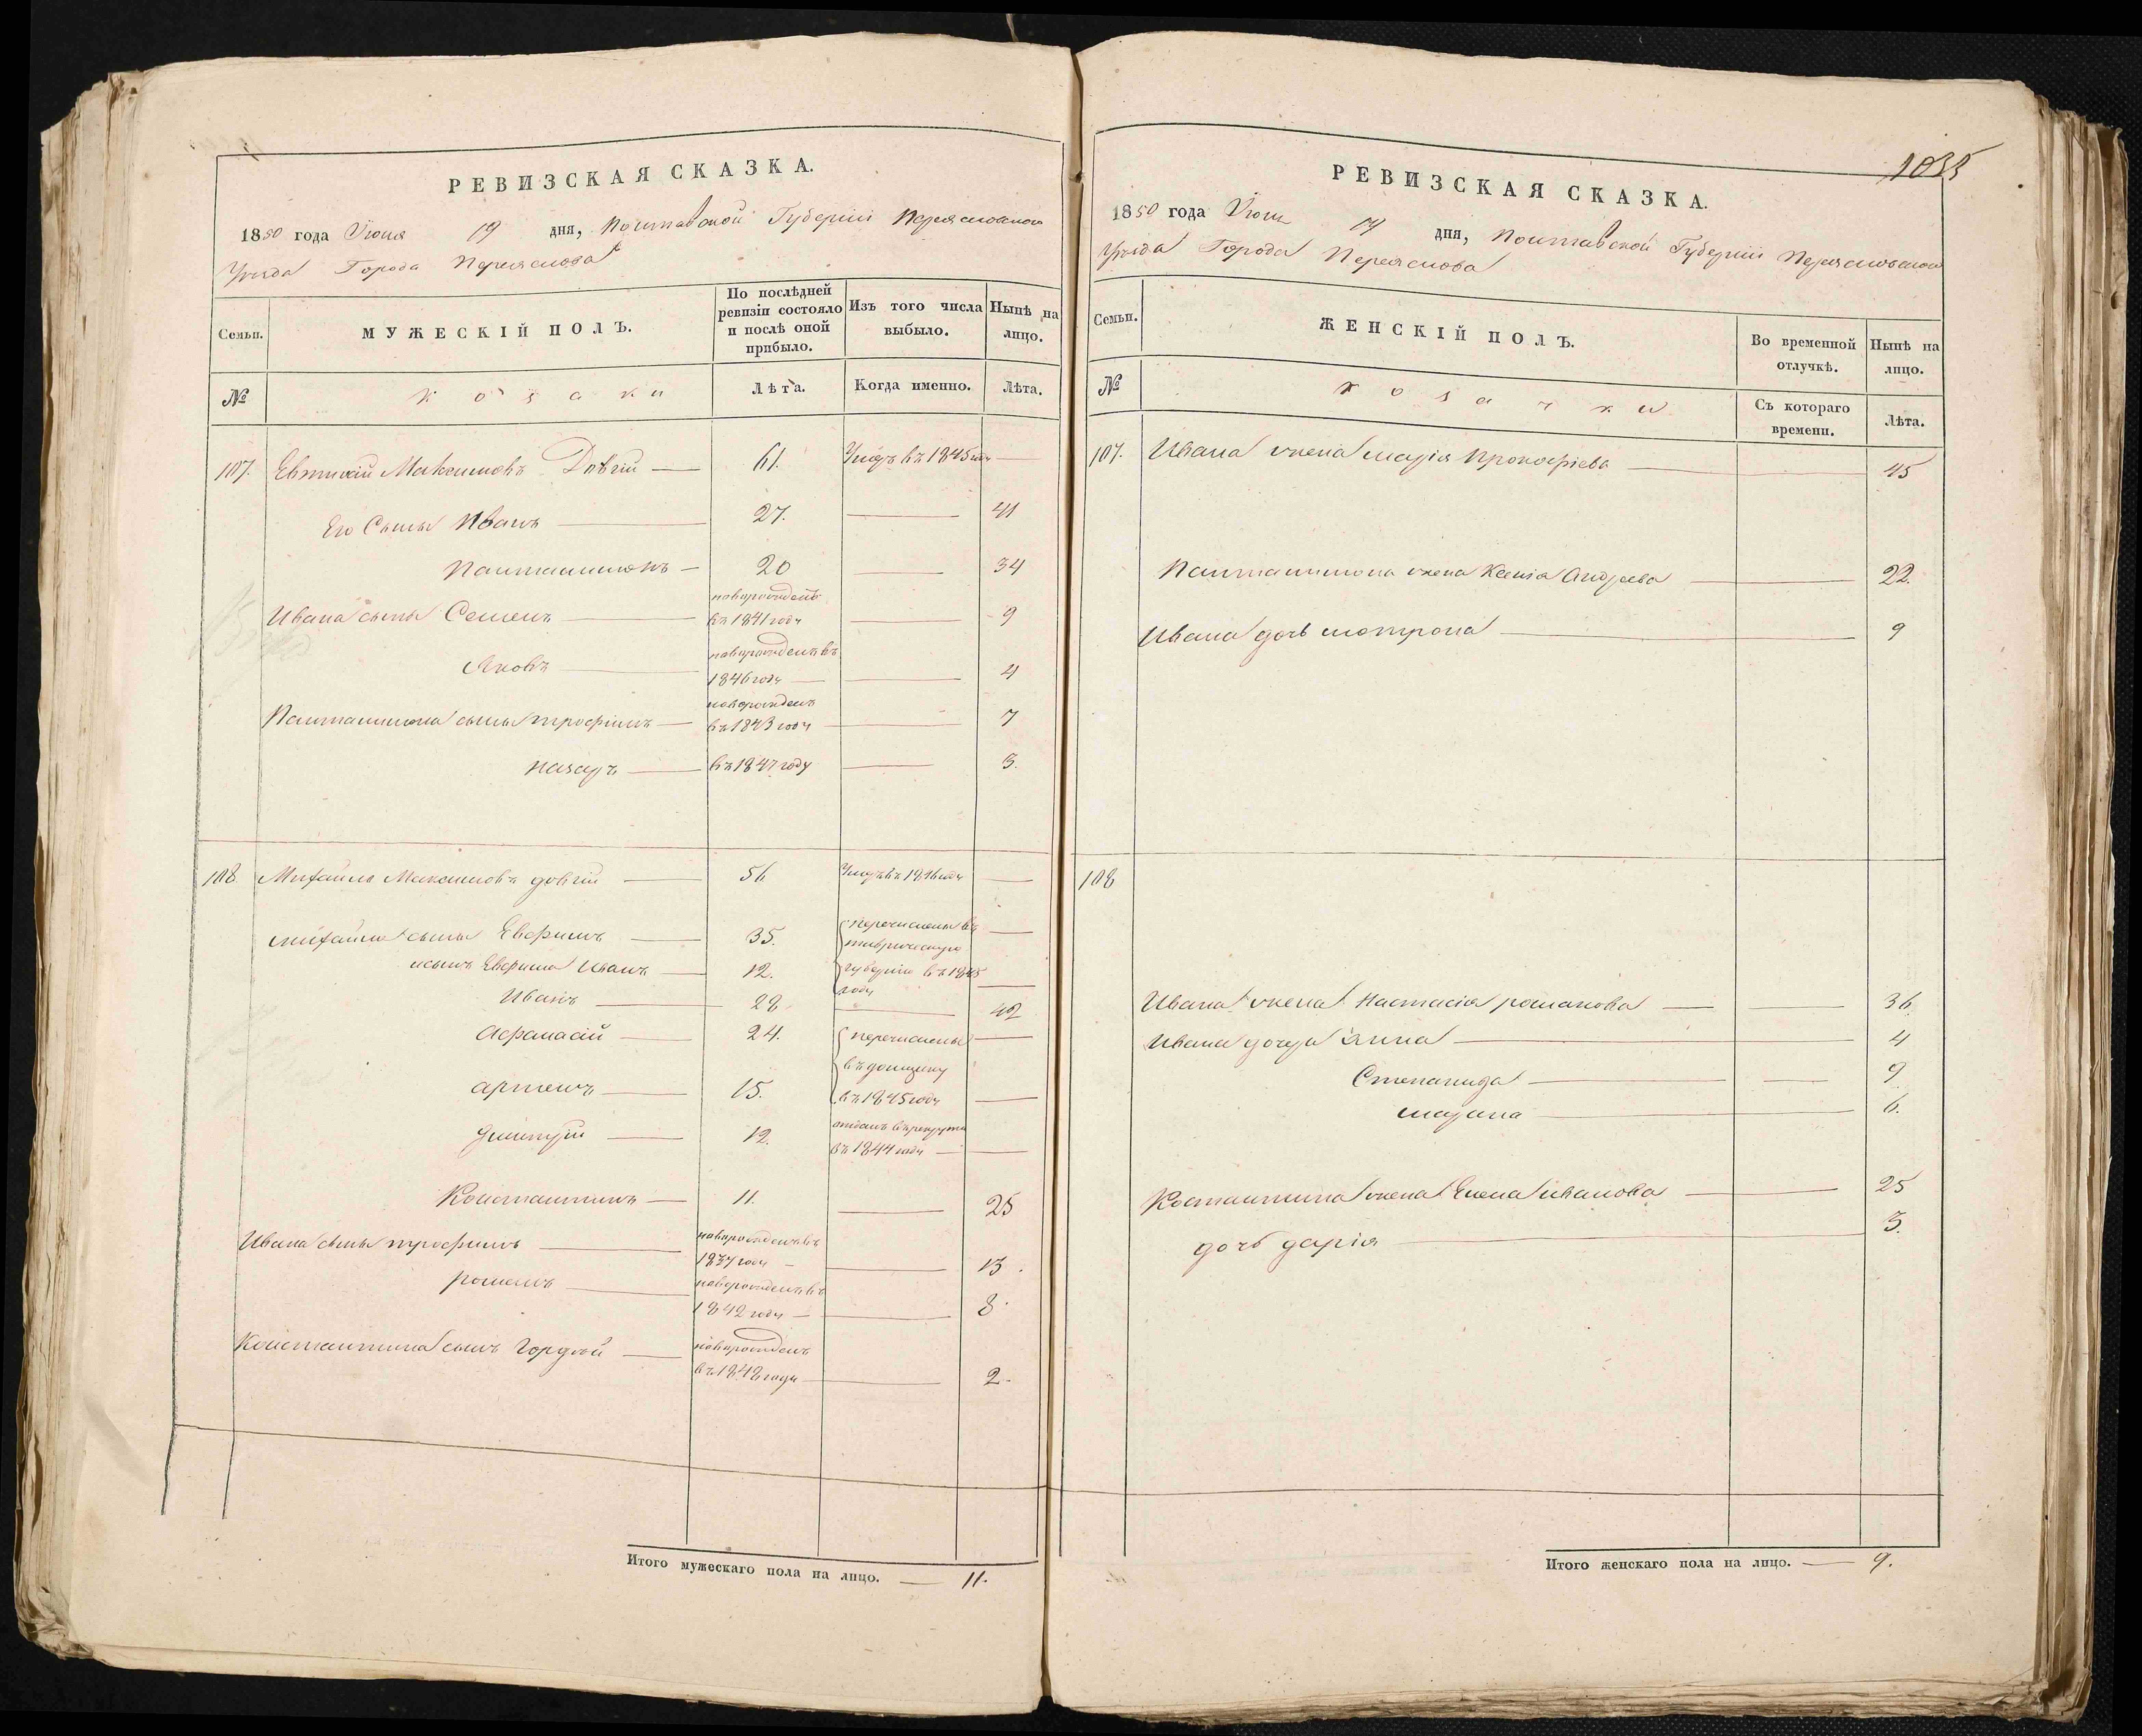 РЕВИЗСКАЯ СКАЗКА.
1850 года Июня 19 дня, Полтавской Губерніи Переясловского
Уезда Города Переяслова
Семьи. МУЖЕСКІЙ ПОЛЪ. По послѣдней ревизіи состояло и послѣ оной прибыло. Изъ того числа выбыло. Нынѣ на лицо.
№ козаки Лѣта. Когда именно. Лѣта.
107. Евтихій Максимовъ Довгій 61. Умеръ въ 1845 году
Его Сыны Иванъ 27. 41
Пантилимонъ 20 34
Ивана сыны Семенъ новорожденъ въ 1841 году 9
Яковъ новорожденъ въ 1846 году 4
Пантилимона сыны трофимъ новорожденъ въ 1843 году 7
назаръ въ 1847 году 3.
108 Михайло Максимовъ довгій 56 Умеръ въ 1846 году
михайла сыны Евфимъ 35. перечислены въ таврическую
Евфима Иванъ 12. губернію въ 1845 году
Иванъ 28 42
Афанасій 24. перечислены
въ донщину
артемъ 15. въ 1845 году
дмитрій 12. отданъ въ рекруты
въ 1844 году
Константинъ 11. 25
Ивана сыны трофимъ новорожденъ въ 1837 году 13
романъ новорожденъ въ 1842 году 8
Константина сынъ Гордѣй новорожденъ въ 1848 году 2
Итого мужескаго пола на лицо. 11.
1035
РЕВИЗСКАЯ СКАЗКА.
1850 года Июня 19 дня, Полтавской Губерніи Переясловского
Уезда Города Переяслова
Семьи. ЖЕНСКІЙ ПОЛЪ. Во временной отлучкѣ. Нынѣ на лицо.
№ козачки Съ котораго времени. Лѣта.
107. Ивана жена марія Прокофіева 45
Пантилимона жена Ксенія Андреева 22.
Ивана дочь мотрона 9
108
Ивана жена Настасія романова 36.
Ивана дочери Анна 4
Степанида 9
марина 6.
Костантина жена Елена иванова 25
дочь дарія 3.
Итого женскаго пола на лицо. 9.